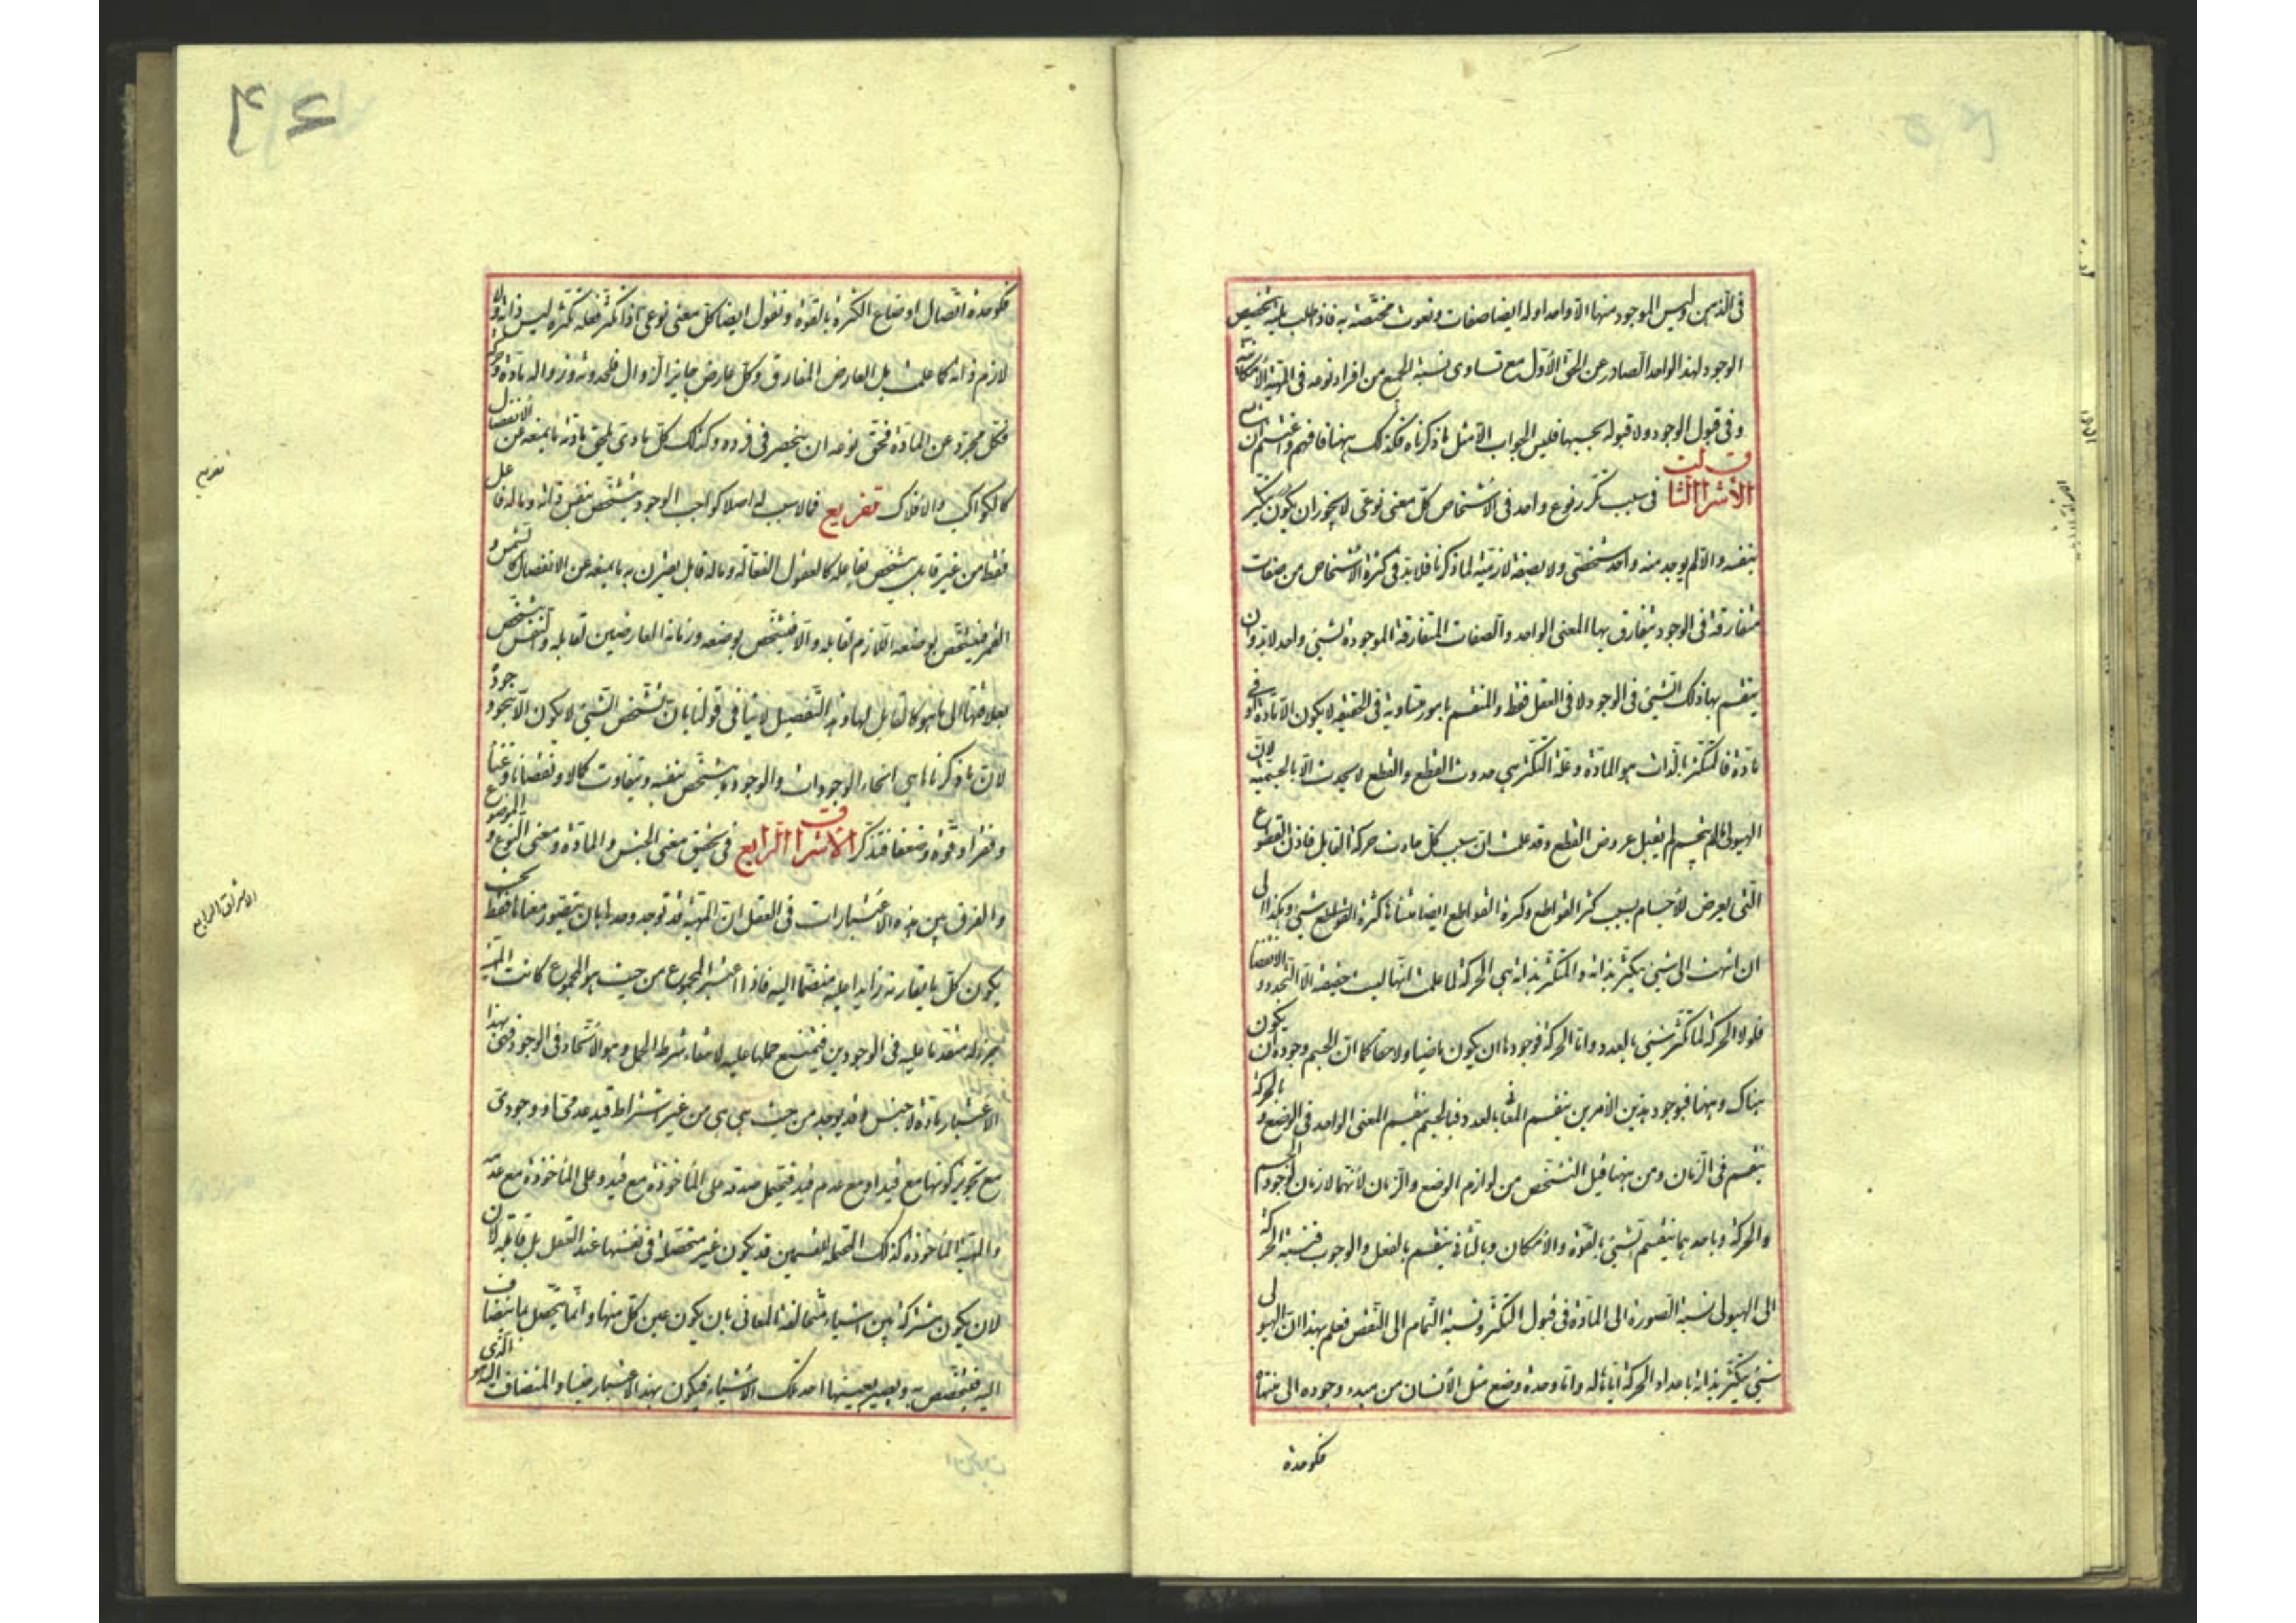 فى الذهن وليس الموجود منها الا واحدا وله ايضا صفات ونعوت مختصة به فاذا طلب بلمية تخصيص
الوجود لهذا الواحد الصادر عن الحق الأول مع تساوى نسبة الجميع من افراد نوعه فى المهية الأمكانية
وفى قبول الوجود ولا قبوله بحسبها فليس الجواب الا مثل ما ذكرناه فكذلك ههنا فافهم واغتنم
الأشراق الثالث فى سبب تكرر نوع واحد فى الأشخاص كل معنى نوعى لا يجوز ان يكون تكثره
بنفسه والا لم يوجد منه واحد شخصى ولا بصفة لازمة لما ذكرنا فلابد فى كثرة الأشخاص من صفات
متفارقة فى الوجود يتفارق بها المعنى الواحد والصفات المتفارقة الموجودة لشئ واحد لابد وان
ينقسم بها ذلك الشئ فى الوجود لا فى العقل فقط والمنقسم بامور متساوية فى الحقيقة لا يكون الا مادة او فى
مادة فالمتكثر بالذات هو المادة وعلة التكثر هى حدوث القطع والقطع لا يحدث الا بالجسمية لان
الهيولى ما لم يتجسم لم يقبل عروض القطع وقد علمت ان سبب كل حادث حركة القابل فاذن القطوع
التى يعرض للأجسام بسبب كثرة القواطع وكثرة القواطع ايضا منشأها كثرة القواطع شئ وهكذا الى
ان انتهت الى شئ يتكثر بذاته والمتكثر بذاته هى الحركة لما علمت انها ليست حقيقة الا التجدد والانقضا
فلولا الحركة لما تكثر شئ بالعدد واما الحركة فوجودها ان يكون ماضيا ولاحقا كما ان الجسم وجوده ان يكون
هناك وههنا فبوجود هذين الأمرين ينقسم المعانى بالعدد فبالجسم ينقسم المعنى الواحد فى الوضع وبالحركة
ينقسم فى الزمان ومن ههنا قيل التشخص من لوازم الوضع والزمان لأنهما لازمان لوجود الجسم
والحركة وباحدهما ينقسم الشئ بالقوة والأمكان وبالثانى ينقسم بالفعل والوجوب فنسبة الحركة
الى الهيولى نسبة الصورة الى المادة فى قبول التكثر ونسبة التمام الى النقص فعلم بهذا ان الهيولى
شئ يتكثر بذاته باعداد الحركة اياها له واما وحدة وضع مثل الأنسان من مبدء وجوده الى منتهاه
فكوحدة
فكوحدة اتصال اوضاع الكثرة بالقوة ونقول ايضا كل معنى نوعى اذا تكثر فعلة تكثره ليس ذاته ولا
لازم ذاته كما علمت بل العارض المفارق وكل عارض جايز الزوال فلحدوثه وزواله مادة وحركة
فكل مجرد عن المادة فحق نوعه ان ينحصر فى فرده وكذلك كل مادى يلحق مادته ما يمنعه عن الانفصال
كالكواكب والأفلاك تفريع فما لا سبب له اصلا كواجب الوجود يتشخص بنفس ذاته وما له فاعل
فقط من غير قابل يتشخص بفاعله كالعقول الفعالة وما له قابل يقترن به ما يمنعه عن الانفصال كالشمس و
القمر فيتشخص بوضعه اللازم لقابله والا فيتشخص بوضعه وزمانه العارضين لقابله والنفس يتشخص
بعلاقتها الى ما هو كالقابل لها وهذا التفصيل لا ينافى قولنا بان تشخص الشئ لا يكون الا بنحو وجوده
لان ما ذكرناها هى انحاء الوجودات والوجود مما يتشخص بنفسه ويتفاوت كمالا ونقصانا وغنا
وفقرا وقوة وضعفا فتذكر الأشراق الرابع فى تحقيق معنى الجنس والمادة ومعنى النوع والموضوع
والفرق بين هذه الاعتبارات فى العقل ان المهية قد توجد وحدها بان يتصور معناها فقط بحيث
يكون كل ما يقارنه زايدا عليه منضما اليه فاذا اعتبر المجموع من حيث هو المجموع كانت المهية
جزء له متقدما عليه فى الوجودين فيمتنع حملها عليه لانتفاء شرط الحمل وهو الأتحاد فى الوجود فهى بهذا
الاعتبار مادة لا جنس وقد يوجد من حيث هى هى من غير اشتراط قيد عدمى او وجودى
مع تجويز كونها مع قيد او مع عدم قيد فتحتمل صدقه على المأخوذة مع قيد وعلى المأخوذة مع عدمه
والمهية المأخوذة كذلك المحتملة للقسمين قد يكون غير متحصلة فى نفسها عند العقل بل قابلة لان
لان يكون مشتركة بين اشياء متخالفة المعانى بان يكون عين كل منها وانما يتحصل بما ينضاف
اليه فيتخصص به ويصير بعينها احد تلك الأشياء فيكون بهذا الاعتبار جنسا والمنضاف اليه الذى هو
تفريع
الاشراق الرابع